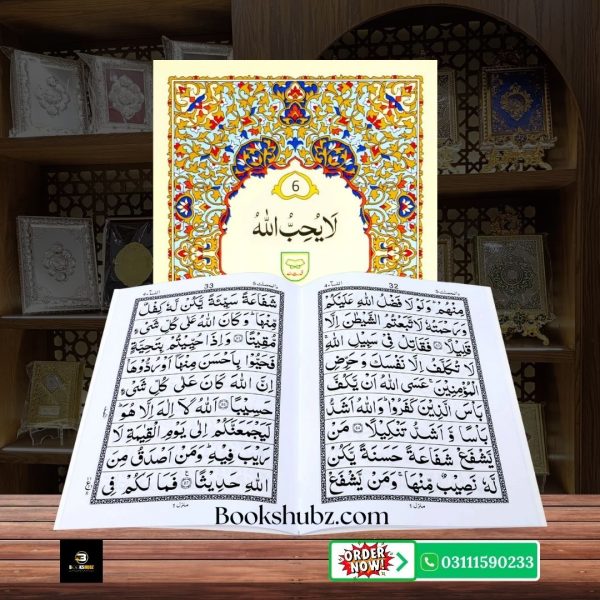 6
لَا يُحِبُّ اللّٰهُ
33
شَفَاعَةً سَيِّئَةً يَّكُنْ لَّهٗ كِفْلٌ
مِّنْهَا ؕ وَكَانَ اللّٰهُ عَلٰى كُلِّ شَىْءٍ
مُّقِيْتًا ۝ وَاِذَا حُيِّيْتُمْ بِتَحِيَّةٍ
فَحَيُّوْا بِاَحْسَنَ مِنْهَاۤ اَوْ رُدُّوْهَا ؕ
اِنَّ اللّٰهَ كَانَ عَلٰى كُلِّ شَىْءٍ
حَسِيْبًا ۝ اَللّٰهُ لَاۤ اِلٰهَ اِلَّا هُوَ ؕ
لَيَجْمَعَنَّكُمْ اِلٰى يَوْمِ الْقِيٰمَةِ لَا
رَيْبَ فِيْهِ ؕ وَمَنْ اَصْدَقُ مِنَ
اللّٰهِ حَدِيْثًا ۝ فَمَا لَكُمْ فِى
منزل ١
32
مِنْهُمْ ؕ وَلَوْلَا فَضْلُ اللّٰهِ عَلَيْكُمْ
وَرَحْمَتُهٗ لَاتَّبَعْتُمُ الشَّيْطٰنَ اِلَّا
قَلِيْلًا ۝ فَقَاتِلْ فِىْ سَبِيْلِ اللّٰهِ ۚ
لَا تُكَلَّفُ اِلَّا نَفْسَكَ وَحَرِّضِ
الْمُؤْمِنِيْنَ ۚ عَسَى اللّٰهُ اَنْ يَّكُفَّ
بَاْسَ الَّذِيْنَ كَفَرُوْا ؕ وَاللّٰهُ اَشَدُّ
بَاْسًا وَّ اَشَدُّ تَنْكِيْلًا ۝ مَنْ
يَّشْفَعْ شَفَاعَةً حَسَنَةً يَّكُنْ
لَّهٗ نَصِيْبٌ مِّنْهَا ۚ وَمَنْ يَّشْفَعْ
منزل ١
Bookshubz.com
BOOKSHUBZ
ORDER
NOW!
03111590233